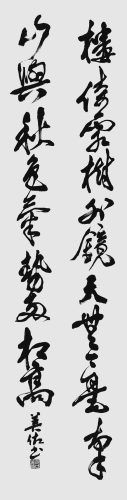 樓倚霜樹外鏡天無一毫南
山與秋色氣勢兩相高